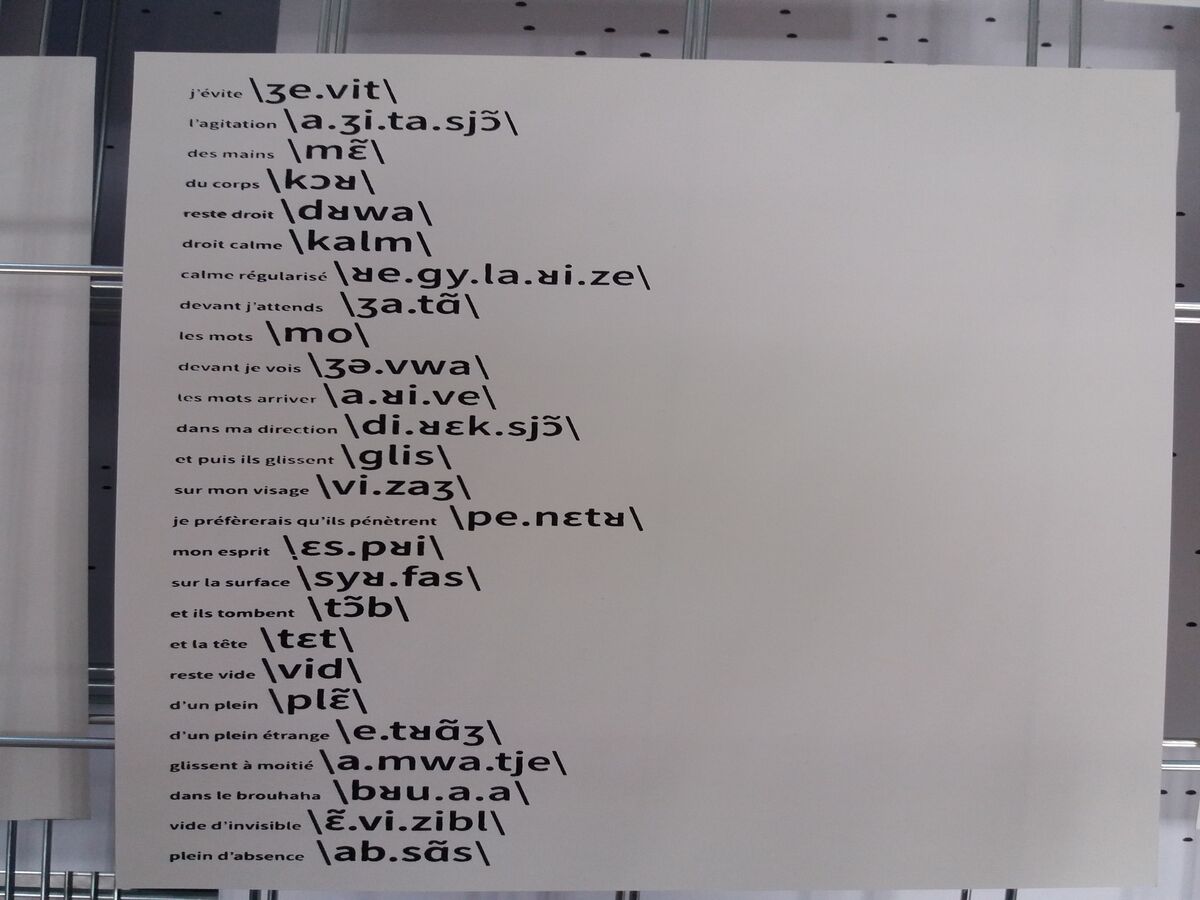 j'évite \ʒe.vit\
l'agitation \a.ʒi.ta.sjɔ̃\
des mains \mɛ̃\
du corps \kɔʁ\
reste droit \dʁwa\
droit calme \kalm\
calme régularisé \ʁe.gy.la.ʁi.ze\
devant j'attends \ʒa.tɑ̃\
les mots \mo\
devant je vois \ʒə.vwa\
les mots arriver \a.ʁi.ve\
dans ma direction \di.ʁɛk.sjɔ̃\
et puis ils glissent \glis\
sur mon visage \vi.zaʒ\
je préfèrerais qu'ils pénètrent \pe.nɛtʁ\
mon esprit \ɛs.pʁi\
sur la surface \syʁ.fas\
et ils tombent \tɔ̃b\
et la tête \tɛt\
reste vide \vid\
d'un plein \plɛ̃\
d'un plein étrange \e.tʁɑ̃ʒ\
glissent à moitié \a.mwa.tje\
dans le brouhaha \bʁu.a.a\
vide d'invisible \ɛ̃.vi.zibl\
plein d'absence \ab.sɑ̃s\